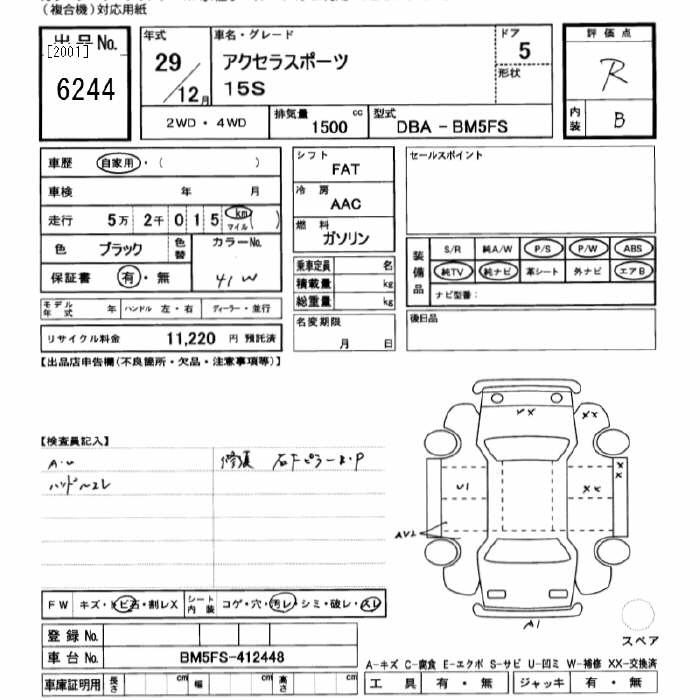 (複合機)対応用紙
出品No.
[2001]
6244
年式
29/12月
車名・グレード
アクセラスポーツ
15S
ドア
5
形状
2WD・4WD
排気量
1500 cc
型式
DBA-BM5FS
評価点
R
内装
B
車歴 自家用・( )
車検 年 月
走行 5万 2千 0 1 5 km マイル ( )
色 ブラック 色替
カラーNo.
41W
保証書 有・無
モデル年式 年 ハンドル 左・右 ディーラー・並行
リサイクル料金 11,220 円 預託済
シフト
FAT
冷房
AAC
燃料
ガソリン
乗車定員 名
積載量 kg
総重量 kg
名変期限
月 日
セールスポイント
装備品
S/R 純A/W P/S P/W ABS
純TV 純ナビ 革シート 外ナビ エアB
ナビ型番:
後日品
【出品店申告欄(不良箇所・欠品・注意事項等)】
【検査員記入】
A・U
ハンドルスレ
修復 右FピラーX・P
XX
XX
XX
XX
U1
AU2
A1
FW キズ・トビ石・割レX
シート内装 コゲ・穴・汚レ・シミ・破レ・スレ
登録No.
車台No. BM5FS-412448
車庫証明用 長さ cm 幅 cm 高さ cm
スペア
A-キズ C-腐食 E-エクボ S-サビ U-凹ミ W-補修 XX-交換済
工具 有・無 ジャッキ 有・無